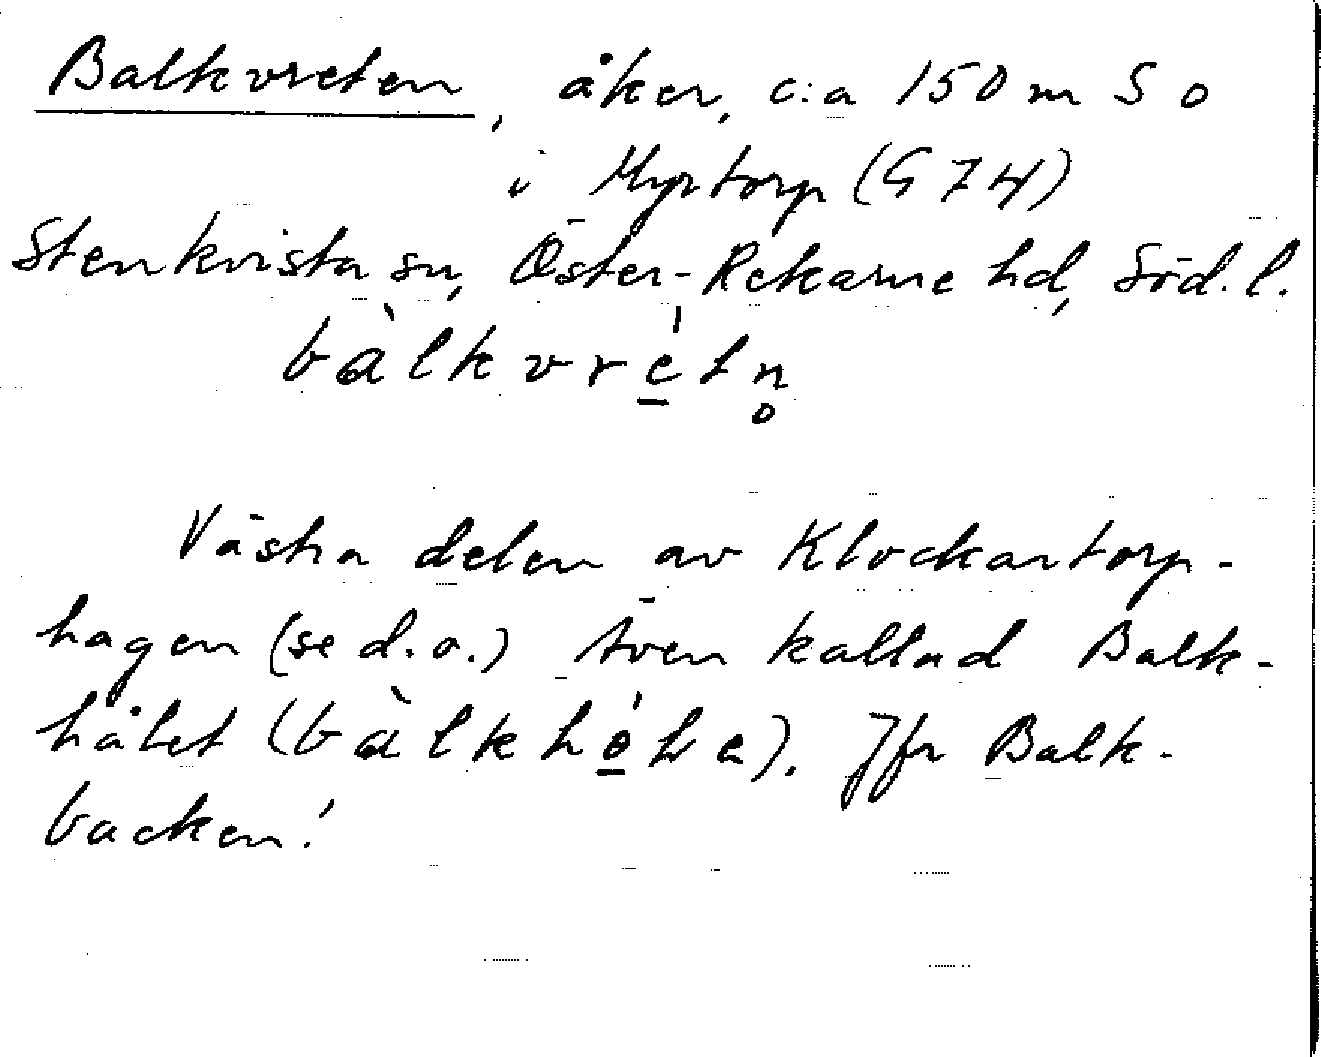 Balkvreten, åker, c:a 150 m S o
i Myrtorp (G 74)
Stenkvista sn, Öster-Rekarne hd, Söd. l.
bàlkvré̱tn̥
Västra delen av Klockartorp-
hagen (se d.o.) Även kallad Balk-
hålet (bàlkhó̱le). Jfr Balk-
backen!